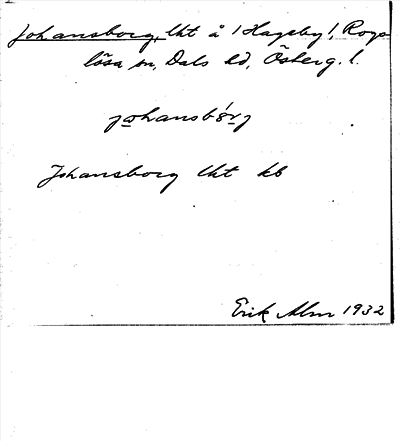 Johansborg, lht å 1 Hageby 1, Rogs-
lösa sn, Dals hd, Österg. l.
johansbórj
Johansborg lht kb
Erik Alm 1932